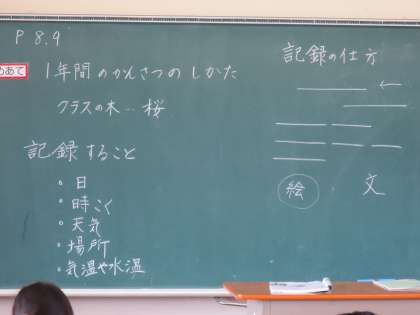 P 8.9
めあて
1年間のかんさつのしかた
クラスの木…桜
記録すること
・日
・時こく
・天気
・場所
・気温や水温
記録の仕方
←
絵 文